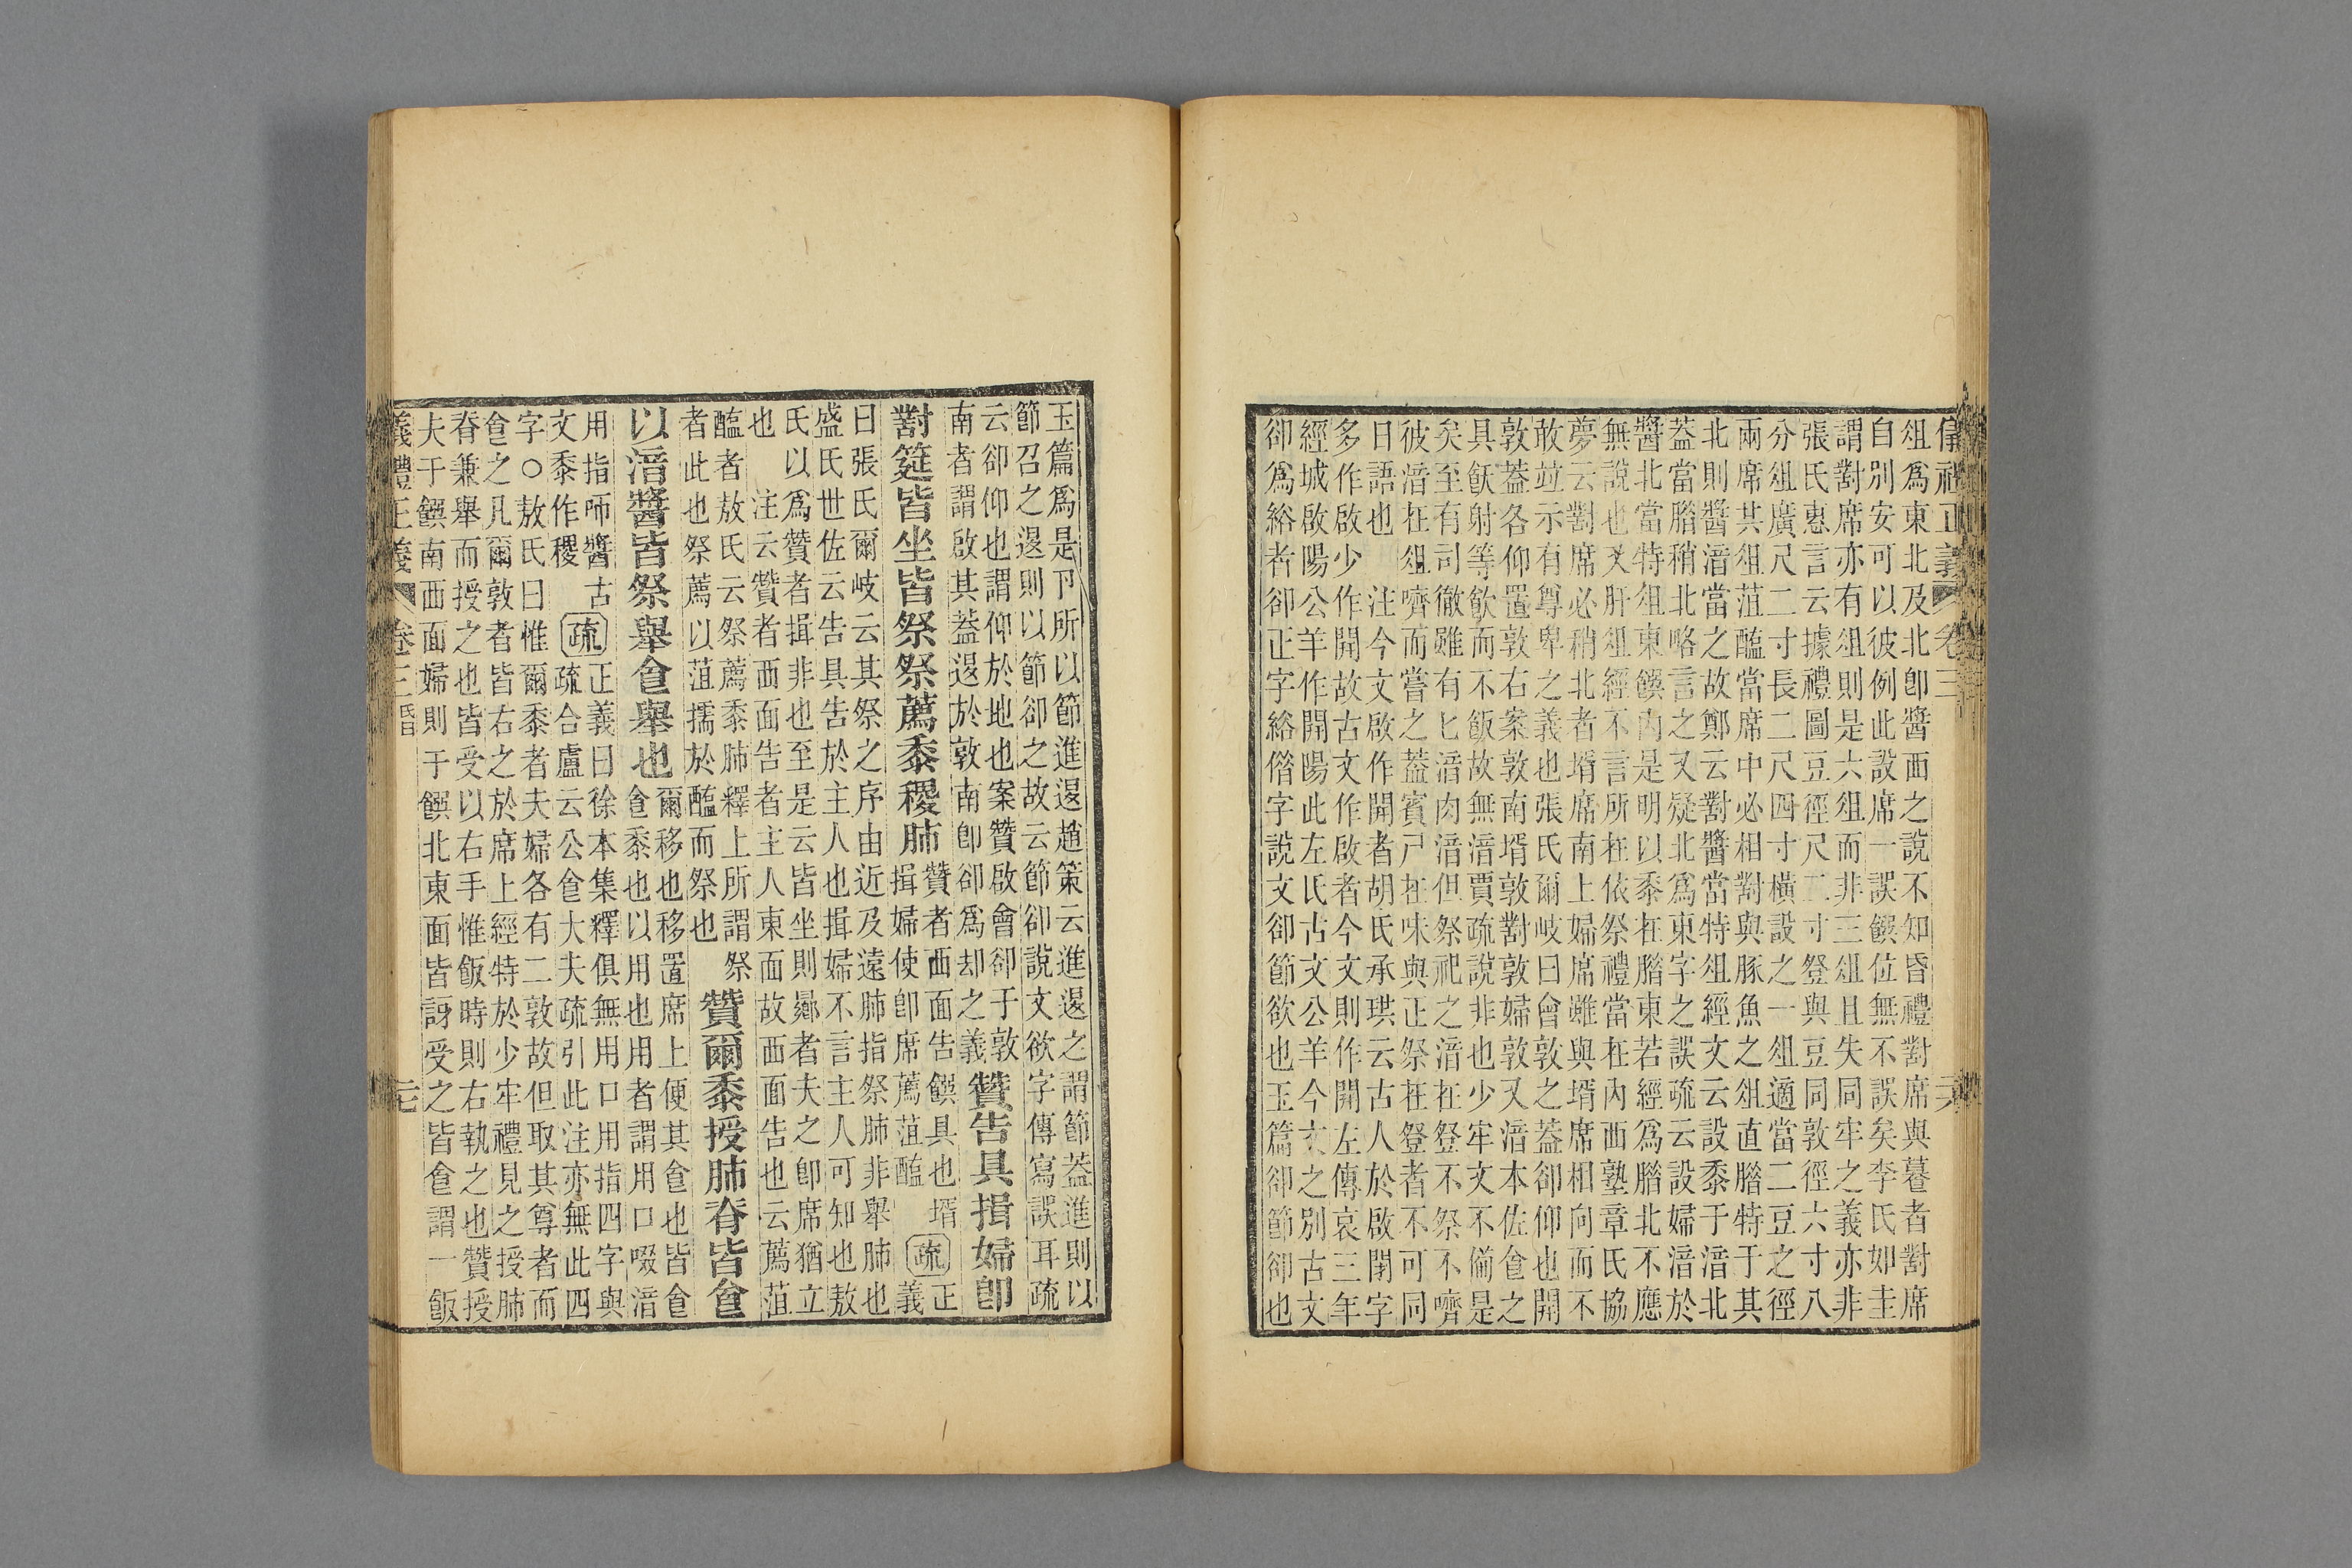 儀禮正義 卷三 六
俎爲東北及北卽醬西之說不知昏禮對席與暮者對席
自別安可以彼例此設席一誤饌位無不誤矣李氏如圭
謂對席亦有俎則是六俎而非三俎且失同牢之義亦非
張氏惠言云據禮圖豆徑尺二寸豋與豆同敦徑六寸八
分俎廣尺二寸長二尺四寸橫設之一俎適當二豆之徑
兩席其俎菹醢當席中必相對與豚魚之俎直腊特于其
北則醬湆當之故鄭云對醬當特俎經文云設黍于湆北
蓋當腊稍北略言之又疑北爲東字之誤疏云設婦湆於
醬北當特俎東饌內是明以黍在腊東若經爲腊北不應
無說也又肝俎經不言所在依祭禮當在內西塾章氏協
夢云對席必稍北者壻席南上婦席雖與壻席相向而不
敢並示有尊卑之義也張氏爾岐曰曾敦之蓋卻仰也開
敦蓋各仰置敦右案敦南壻敦對敦婦敦又湆本佐食之
具飫射等飲而不飯故無湆賈疏說非也少牢文不備是
矣至有司徹雖有匕湆肉湆但祭祀之湆在豋不祭不嚌
彼湆在俎嚌而嘗之蓋賓尸在味與正祭在豋者不可同
日語也 注今文啟作開者胡氏承珙云古人於啟閉字
多作啟少作開故古文作啟者今文則作開左傳哀三年
經城啟陽公羊作開陽此左氏古文公羊今文之別古文
卻爲綌者卻正字綌偕字說文卻節欲也玉篇卻節卻也
玉篇爲是卪所以節進退趙策云進退之謂節蓋進則以
節召之退則以節卻之故云節卻說文欲字傳寫誤耳疏
云卻仰也謂仰於地也案贊啟會卻于敦
南者謂啟其蓋退於敦南卽卻爲却之義贊告具揖婦卽
對筵皆坐皆祭祭薦黍稷肺贊者西面告饌具也壻揖婦使卽席薦菹醢疏正義
曰張氏爾岐云其祭之序由近及遠肺指祭肺非舉肺也
盛氏世佐云告具告於主人也揖婦不言主人可知也敖
氏以爲贊者揖非也至是云皆坐則曏者夫之卽席猶立
也 注云贊者西面告者主人東面故西面告也云薦菹
醢者敖氏云祭薦黍肺釋上所謂祭
者此也祭薦以菹擩於醢而祭也贊爾黍授肺脊皆食
以湆醬皆祭舉食舉也爾移也移置席上便其食也皆食食黍也以用也用者謂用口啜湆
用指師醬古文黍作稷疏正義曰徐本集釋俱無用口用指四字與
疏合盧云公食大夫疏引此注亦無此四
字○敖氏曰惟爾黍者夫婦各有二敦故但取其尊者而
食之凡爾敦者皆右之於席上經特於少牢禮見之授肺
脊兼舉而授之也皆受以右手惟飯時則右執之也贊授
夫于饌南西面婦則于饌北東面皆訝受之皆食謂一飯
義禮正義 卷三昏 元